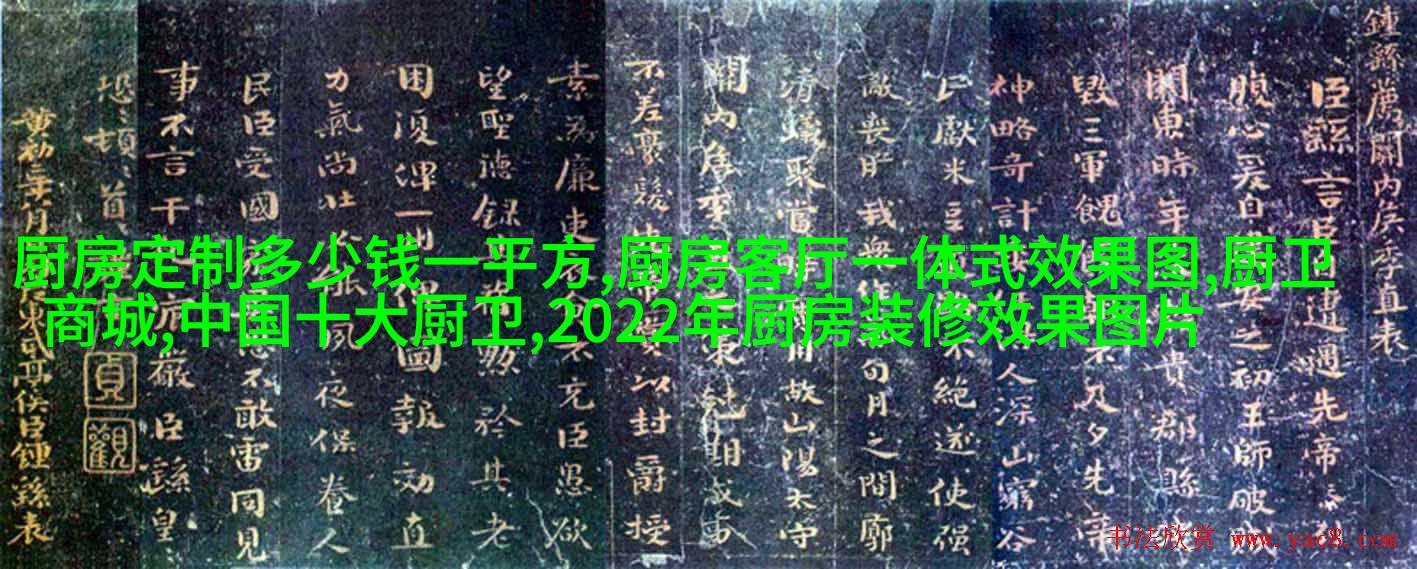 厨房定制多少钱一平方,厨房客厅一体式效果图,厨卫
商城,中国十大厨卫,2022年厨房装修效果图片
鍾繇薦關内侯季直表
臣繇言臣自遭遇先帝忝
腹心爰自安之初王師破賊
關東時年貴郡縣
毀三軍餽不及夕先帝
神略奇計人深山窮谷
民獻米豆不絶遂使强
敵喪膽我衆作旬月之間廓
清蟻聚當時用故山陽太守
關内侯季直策剋期成事
不差豪髮先帝賞以封爵授
素為廉吏衣食不充臣愚欲
望聖德録其舊勳矜其老
困復俾一州俾圖報効直
力氣尚壯必能夙夜保養人
民臣受國恩不敢雷同見
事不言干犯宸嚴臣繇皇
恐頓首
貞
觀
黄初二年八月東武亭侯臣鍾繇表
书法欣赏 www.yac8.com